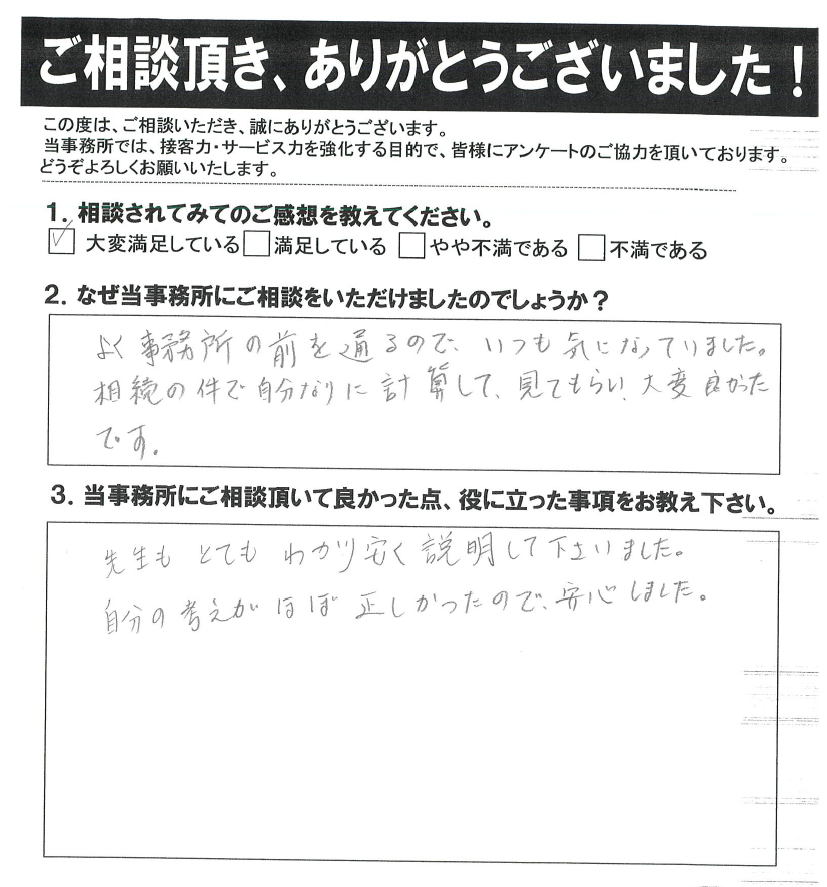 ご相談頂き、ありがとうございました！
この度は、ご相談いただき、誠にありがとうございます。
当事務所では、接客力・サービス力を強化する目的で、皆様にアンケートのご協力を頂いております。
どうぞよろしくお願いいたします。
1. 相談されてみてのご感想を教えてください。
☑ 大変満足している □ 満足している □ やや不満である □ 不満である
2. なぜ当事務所にご相談をいただけましたのでしょうか？
よく事務所の前を通るので、いつも気になっていました。
相続の件で自分なりに計算して、見てもらい、大変良かった
です。
3. 当事務所にご相談頂いて良かった点、役に立った事項をお教え下さい。
先生も とても わかり安く説明して下さいました。
自分の考えがほぼ正しかったので、安心しました。